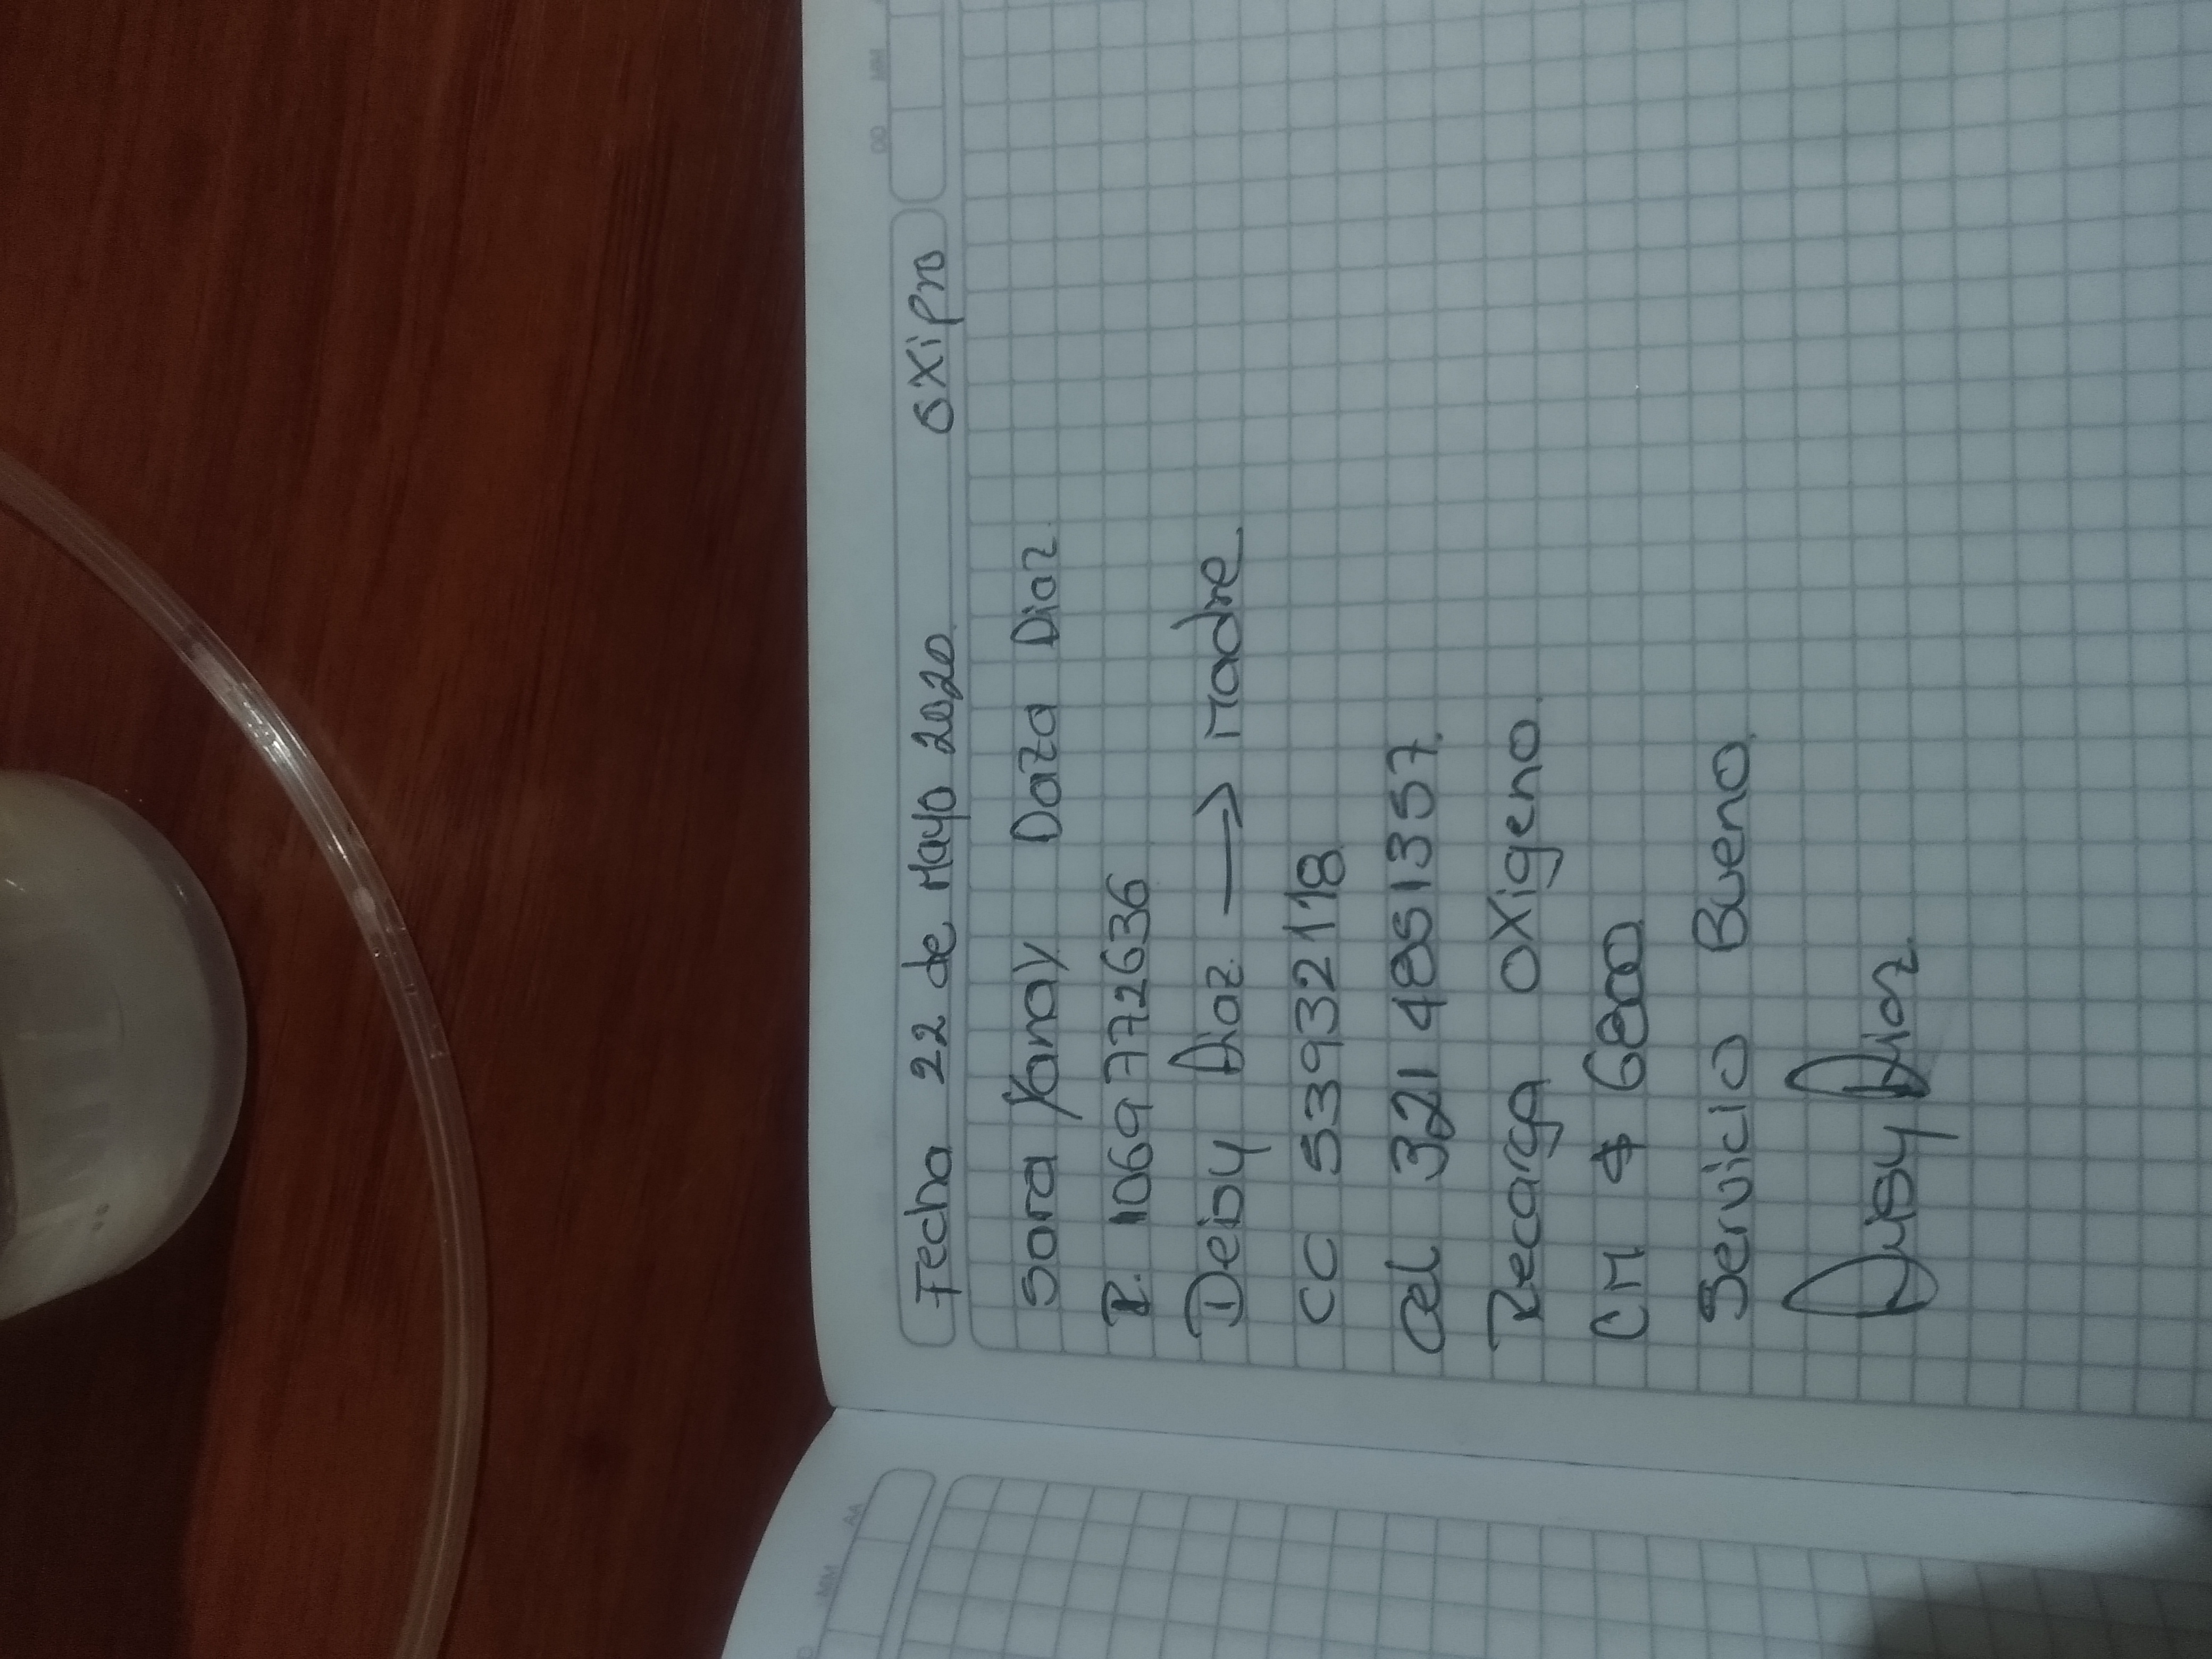 Fecha 22 de Mayo 2020. OXiPro
Sara Yanay Daza Diaz.
R. 1069772636
Deisy Diaz → Madre.
CC 53932118.
Cel 321 4851357.
Recarga OXigeno.
CM $ 6800.
Servicio Bueno.
Deisy Diaz.
DD MM
MM AA